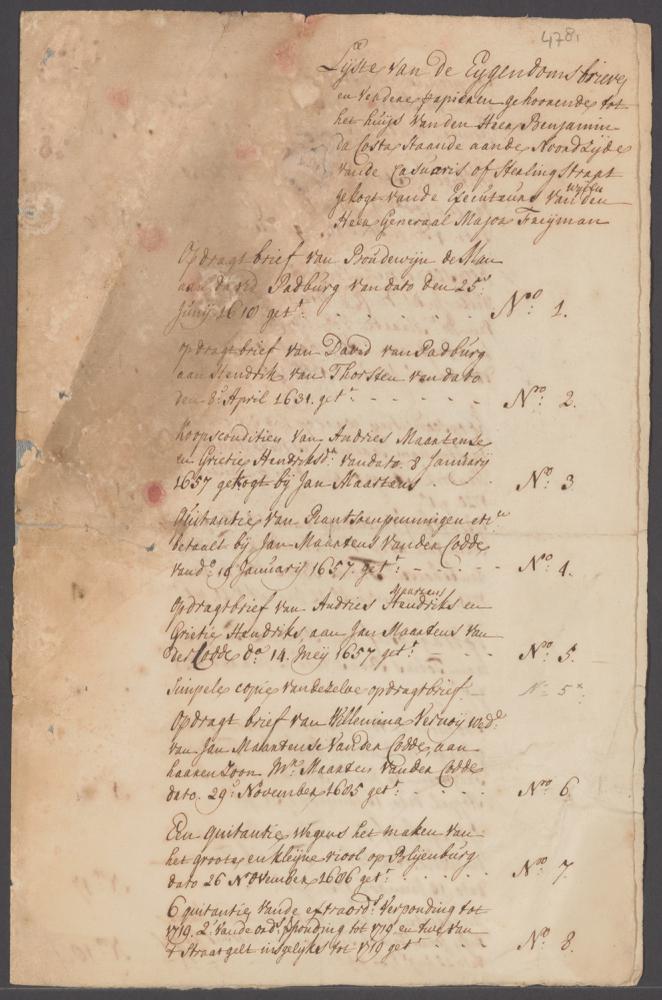 478.
Lijste van de Eygendoms brieve
en verdere papieren gehoorende tot
het huijs van den Heer Benjamin
da Costa staande aande Noordzijde
vande Casuaris of Herlingstraat
gekogt vande Executeurs van wijlen den
Heer Generaal Major Freijman
Opdragt brief van Boudewijn de Man
aan david Padburg van dato den 25e
Junij 1610 get. N.o 1.
opdragt brief van David van Padburg
aan Hendrik van Thorsten van dato
den 8e April 1631. get. N.o 2.
Koopsconditien van Andries Maartense
en Grietie Hendriksd.r van dato 8 January
1657 gekogt bij Jan Maartens N.o 3
Quitantie van Rantsoenpenningen etc.
betaalt bij Jan Maartens vander Codde
van d.o 10 January 1657. get. N.o 4.
Opdragtbrief van Andries Maartens Hendriks en
Grietie Hendriks, aan Jan Maartens van
der Codde d.o 14. Meij 1657 get. N.o 5.
Simpele copie van dezelve opdragtbrief N.o 5*
Opdragt brief van Willemina Vernoij wed.e
van Jan Maartense vander Codde, aan
haaren zoon M.r Maarten vander Codde
dato. 29e November 1685 get. N.ro 6
Een quitantie wegens het maken van
het groote en kleijne riool op Blijenburg
dato 26 November 1686 get. N.o 7.
6 quitantie vande extraord.e verponding tot
1719. 2 vande ord.e pponding tot 1719 en twee van
't Straatgelt insgelijks tot 1719 get. N.o 8.